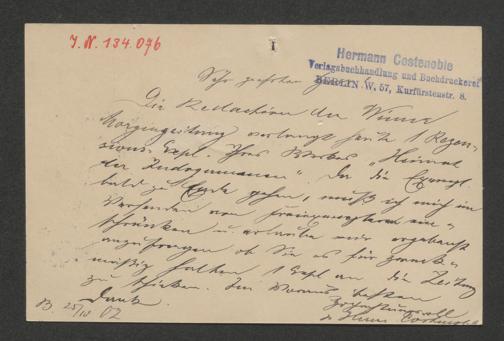 J.N. 134.096
I
Hermann Costenoble
Verlagsbuchhandlung und Buchdruckerei
BERLIN W. 57, Kurfürstenstr. 8.
Sehr geehrter
Die Redaktion der Wiener
Morgenzeitung verlangt heute 1 Rezen-
sions-Expl. Ihres Werkes „Heimat
der Indogermanen“. Da die Exempl.
bald zu Ende gehen, muß ich mich im
Versenden von Freiexemplaren ein-
schränken u. erlaube mir ergebenst
anzufragen ob Sie es für zweck-
mäßig halten, 1 Expl an die Zeitung
zu schicken. Im Voraus besten
Dank.
Hochachtungsvoll
B. 25/10 02
Costenoble